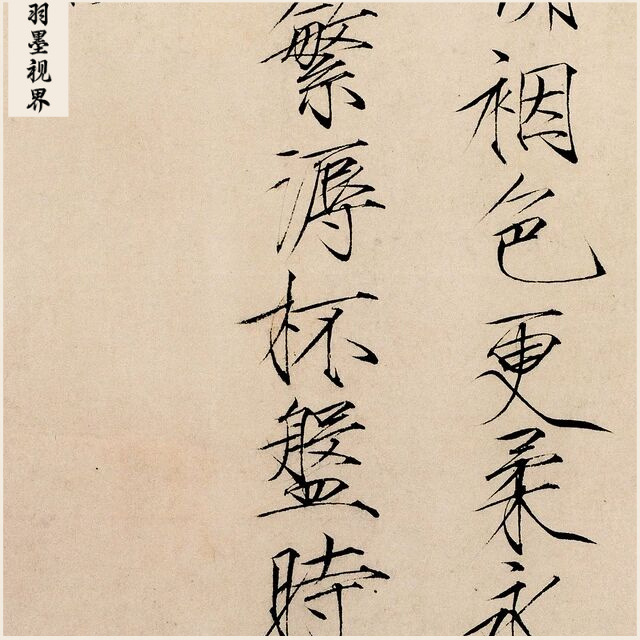 裀色更柔永
繁溽杯盤時
羽墨视界